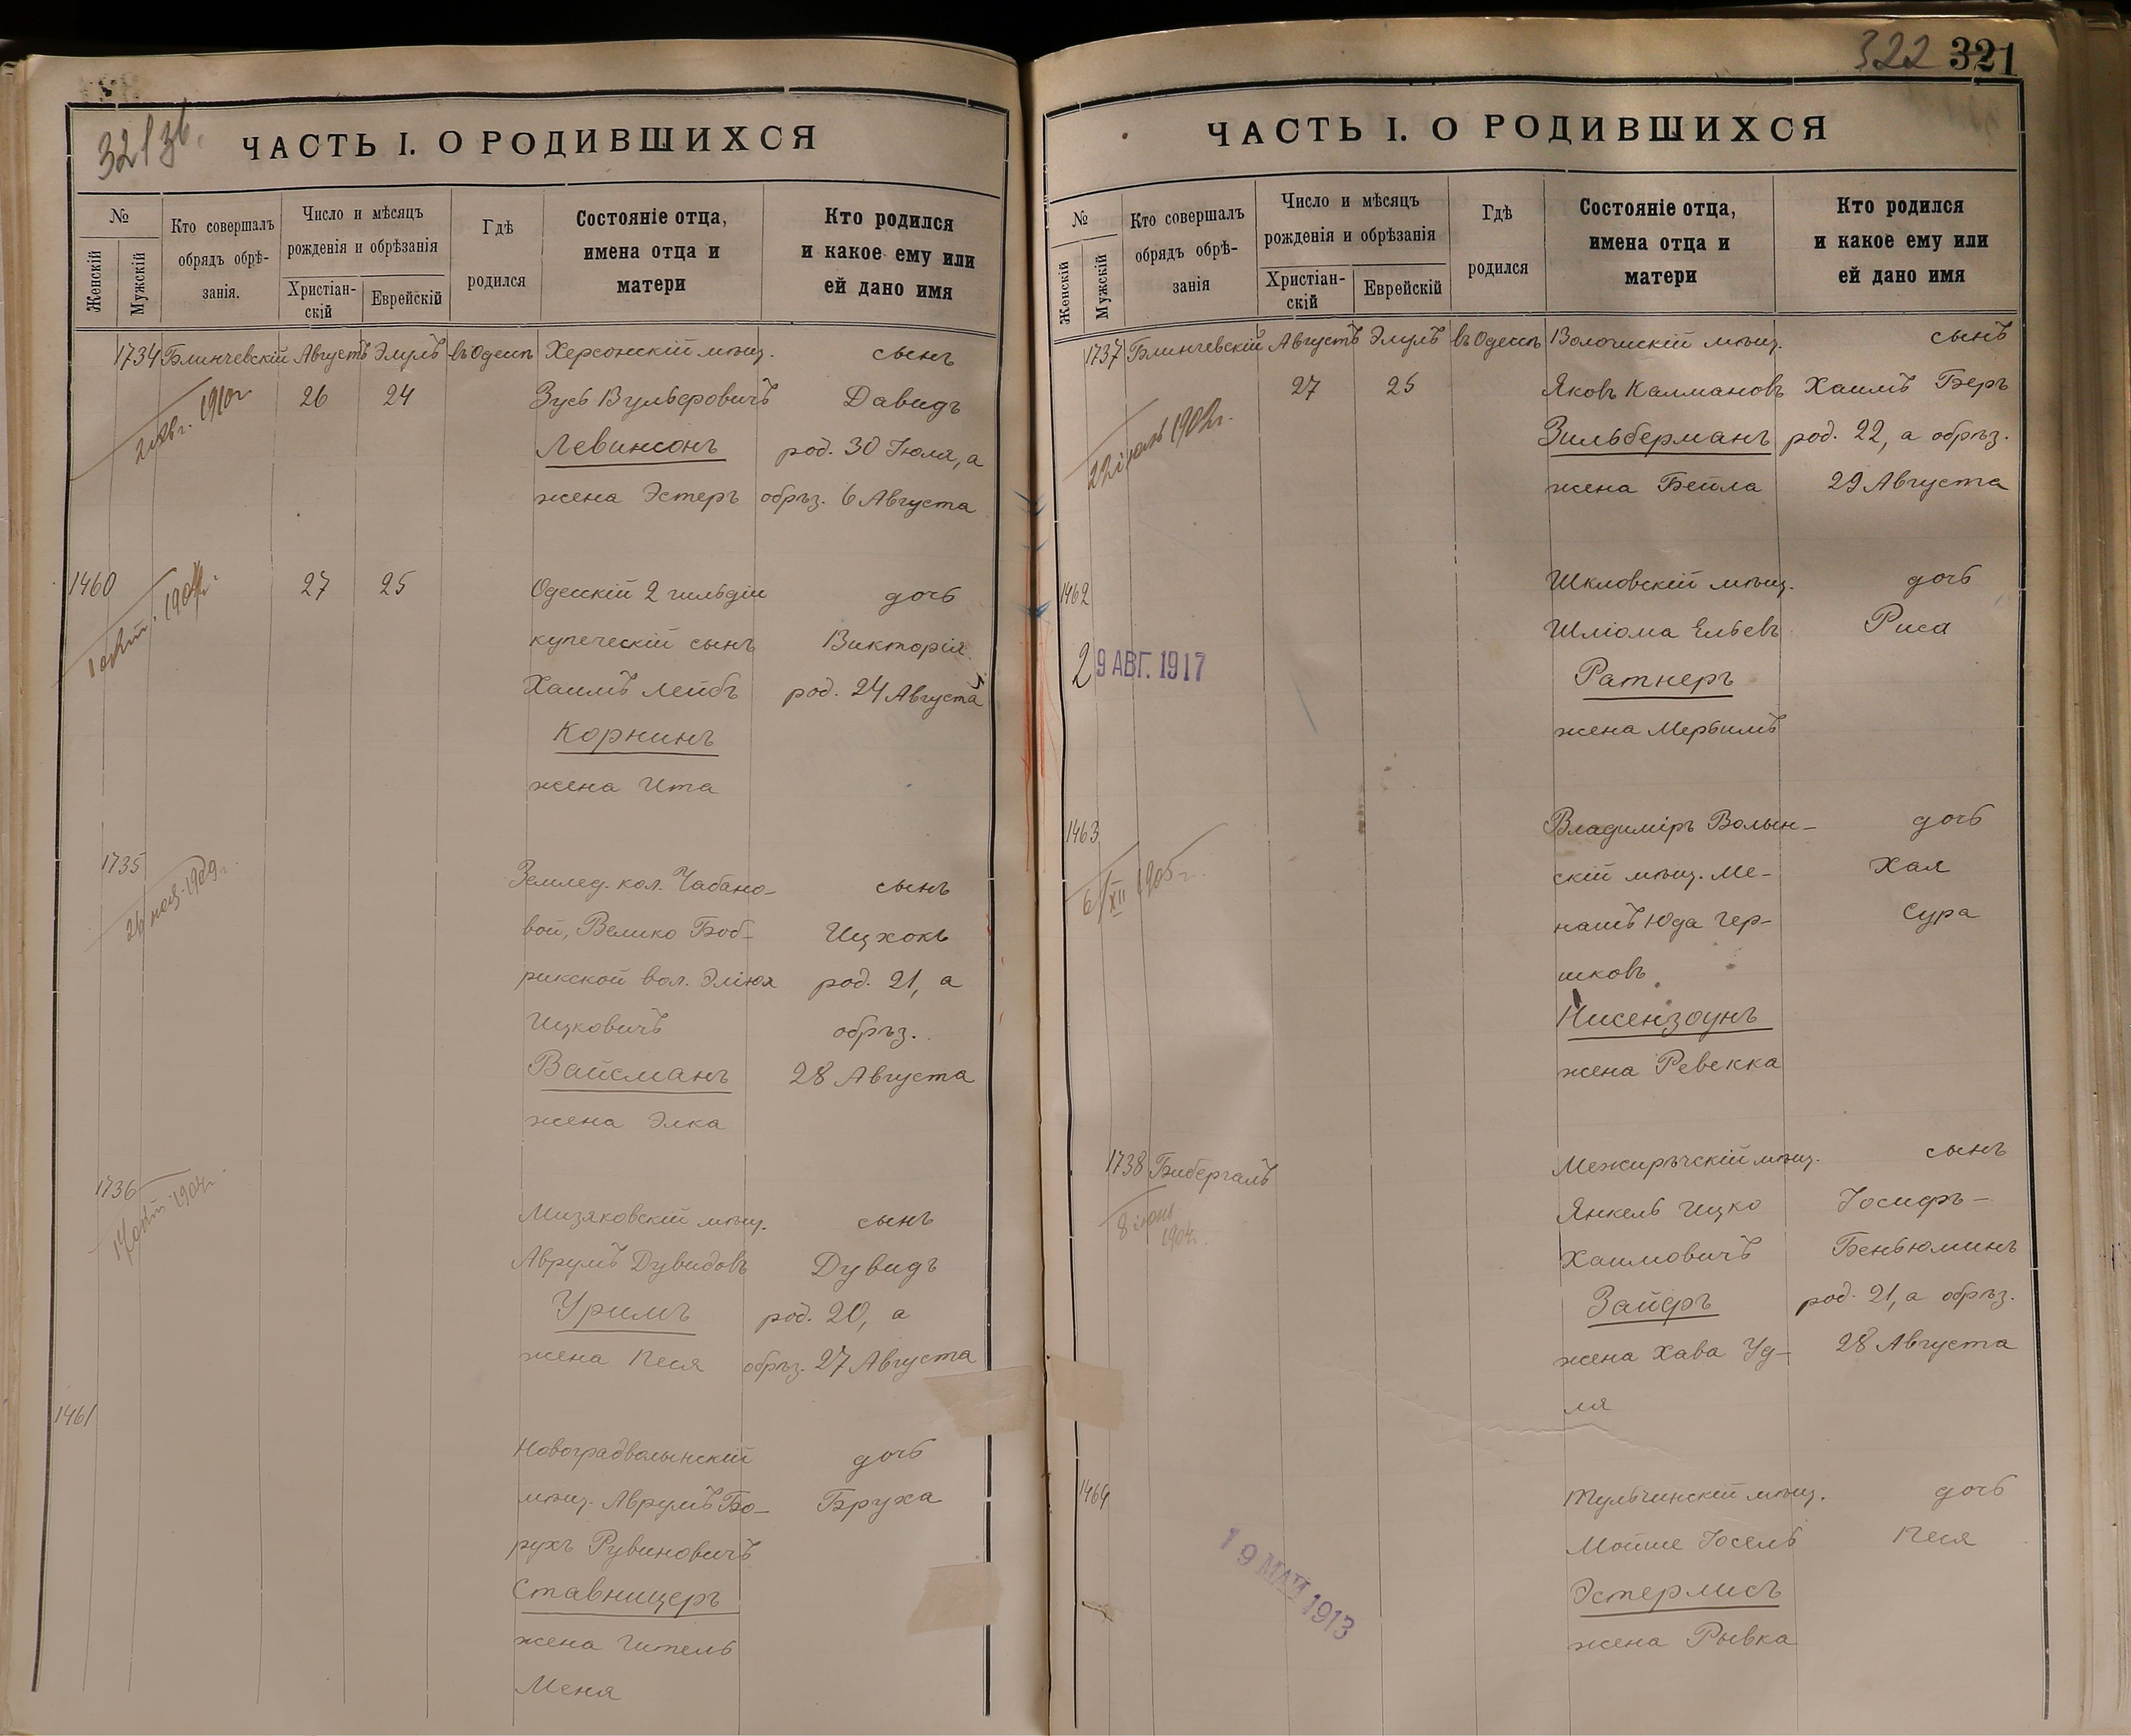 321 зв.
ЧАСТЬ I. О РОДИВШИХСЯ
№
Женскій
Мужскій
Кто совершалъ
обрядъ обрѣ-
занія.
Число и мѣсяцъ
рожденія и обрѣзанія
Христіан-
скій
Еврейскій
Гдѣ
родился
Состояніе отца,
имена отца и
матери
Кто родился
и какое ему или
ей дано имя
1734 Блинчевскій Августъ Элулъ въ Одессѣ Херсонскій мѣщ. сынъ
26 24 Зусь Вульфовичъ Давидъ
1910г.
Левинсонъ род. 30 Іюля, а
жена Эстеръ обрѣз. 6 Августа
1460 27 25 Одесскій 2 гильдіи дочь
купеческій сынъ Викторія
Хаимъ Лейбъ род. 24 Августа
Корнинъ
жена Ита
1735 Землед. кол. Чабано- сынъ
26 1909г.
вой, Велико Боб- Ицхокъ
рикской вол. Эліюя род. 21, а
Ицковичъ обрѣз.
Вайсманъ 28 Августа
жена Элка
1736 Мизяковскій мѣщ. сынъ
Аврумъ Дувидовъ Дувидъ
Уримъ род. 20, а
жена Песя обрѣз. 27 Августа
1461 Новоградволынскій дочь
мѣщ. Аврумъ Бо- Бруха
рухъ Рувиновичъ
Ставницеръ
жена Гитель
Меня
322 321
ЧАСТЬ I. О РОДИВШИХСЯ
№
Женскій
Мужскій
Кто совершалъ
обрядъ обрѣ-
занія
Число и мѣсяцъ
рожденія и обрѣзанія
Христіан-
скій
Еврейскій
Гдѣ
родился
Состояніе отца,
имена отца и
матери
Кто родился
и какое ему или
ей дано имя
1737 Блинчевскій Августъ Элулъ въ Одессѣ мѣщ. сынъ
27 25 Яковъ Калмановъ Хаимъ Беръ
Зильберманъ род. 22, а обрѣз.
жена Бейла 29 Августа
1462 Шкловскій мѣщ. дочь
Шліома Ельевъ Риса
29 АВГ. 1917
Ратнеръ
жена Меръимъ
1463 Владиміръ Волын- дочь
6/XII 1905г.
скій мѣщ. Ме- Хая
нашъ Юда Гер- Сура
шковъ
Нисензоунъ
жена Ревекка
1738 Бибергалъ Межирѣчскій мѣщ. сынъ
8 іюня
1904г.
Янкель Ицко Іосифъ-
Хаимовичъ Беньюминъ
Зайфъ род. 21, а обрѣз.
жена Хава Уд- 28 Августа
ля
1464 Тульчинскій мѣщ. дочь
Мойше Іосель Песя
19 МАЙ 1913
Эстерлисъ
жена Рывка